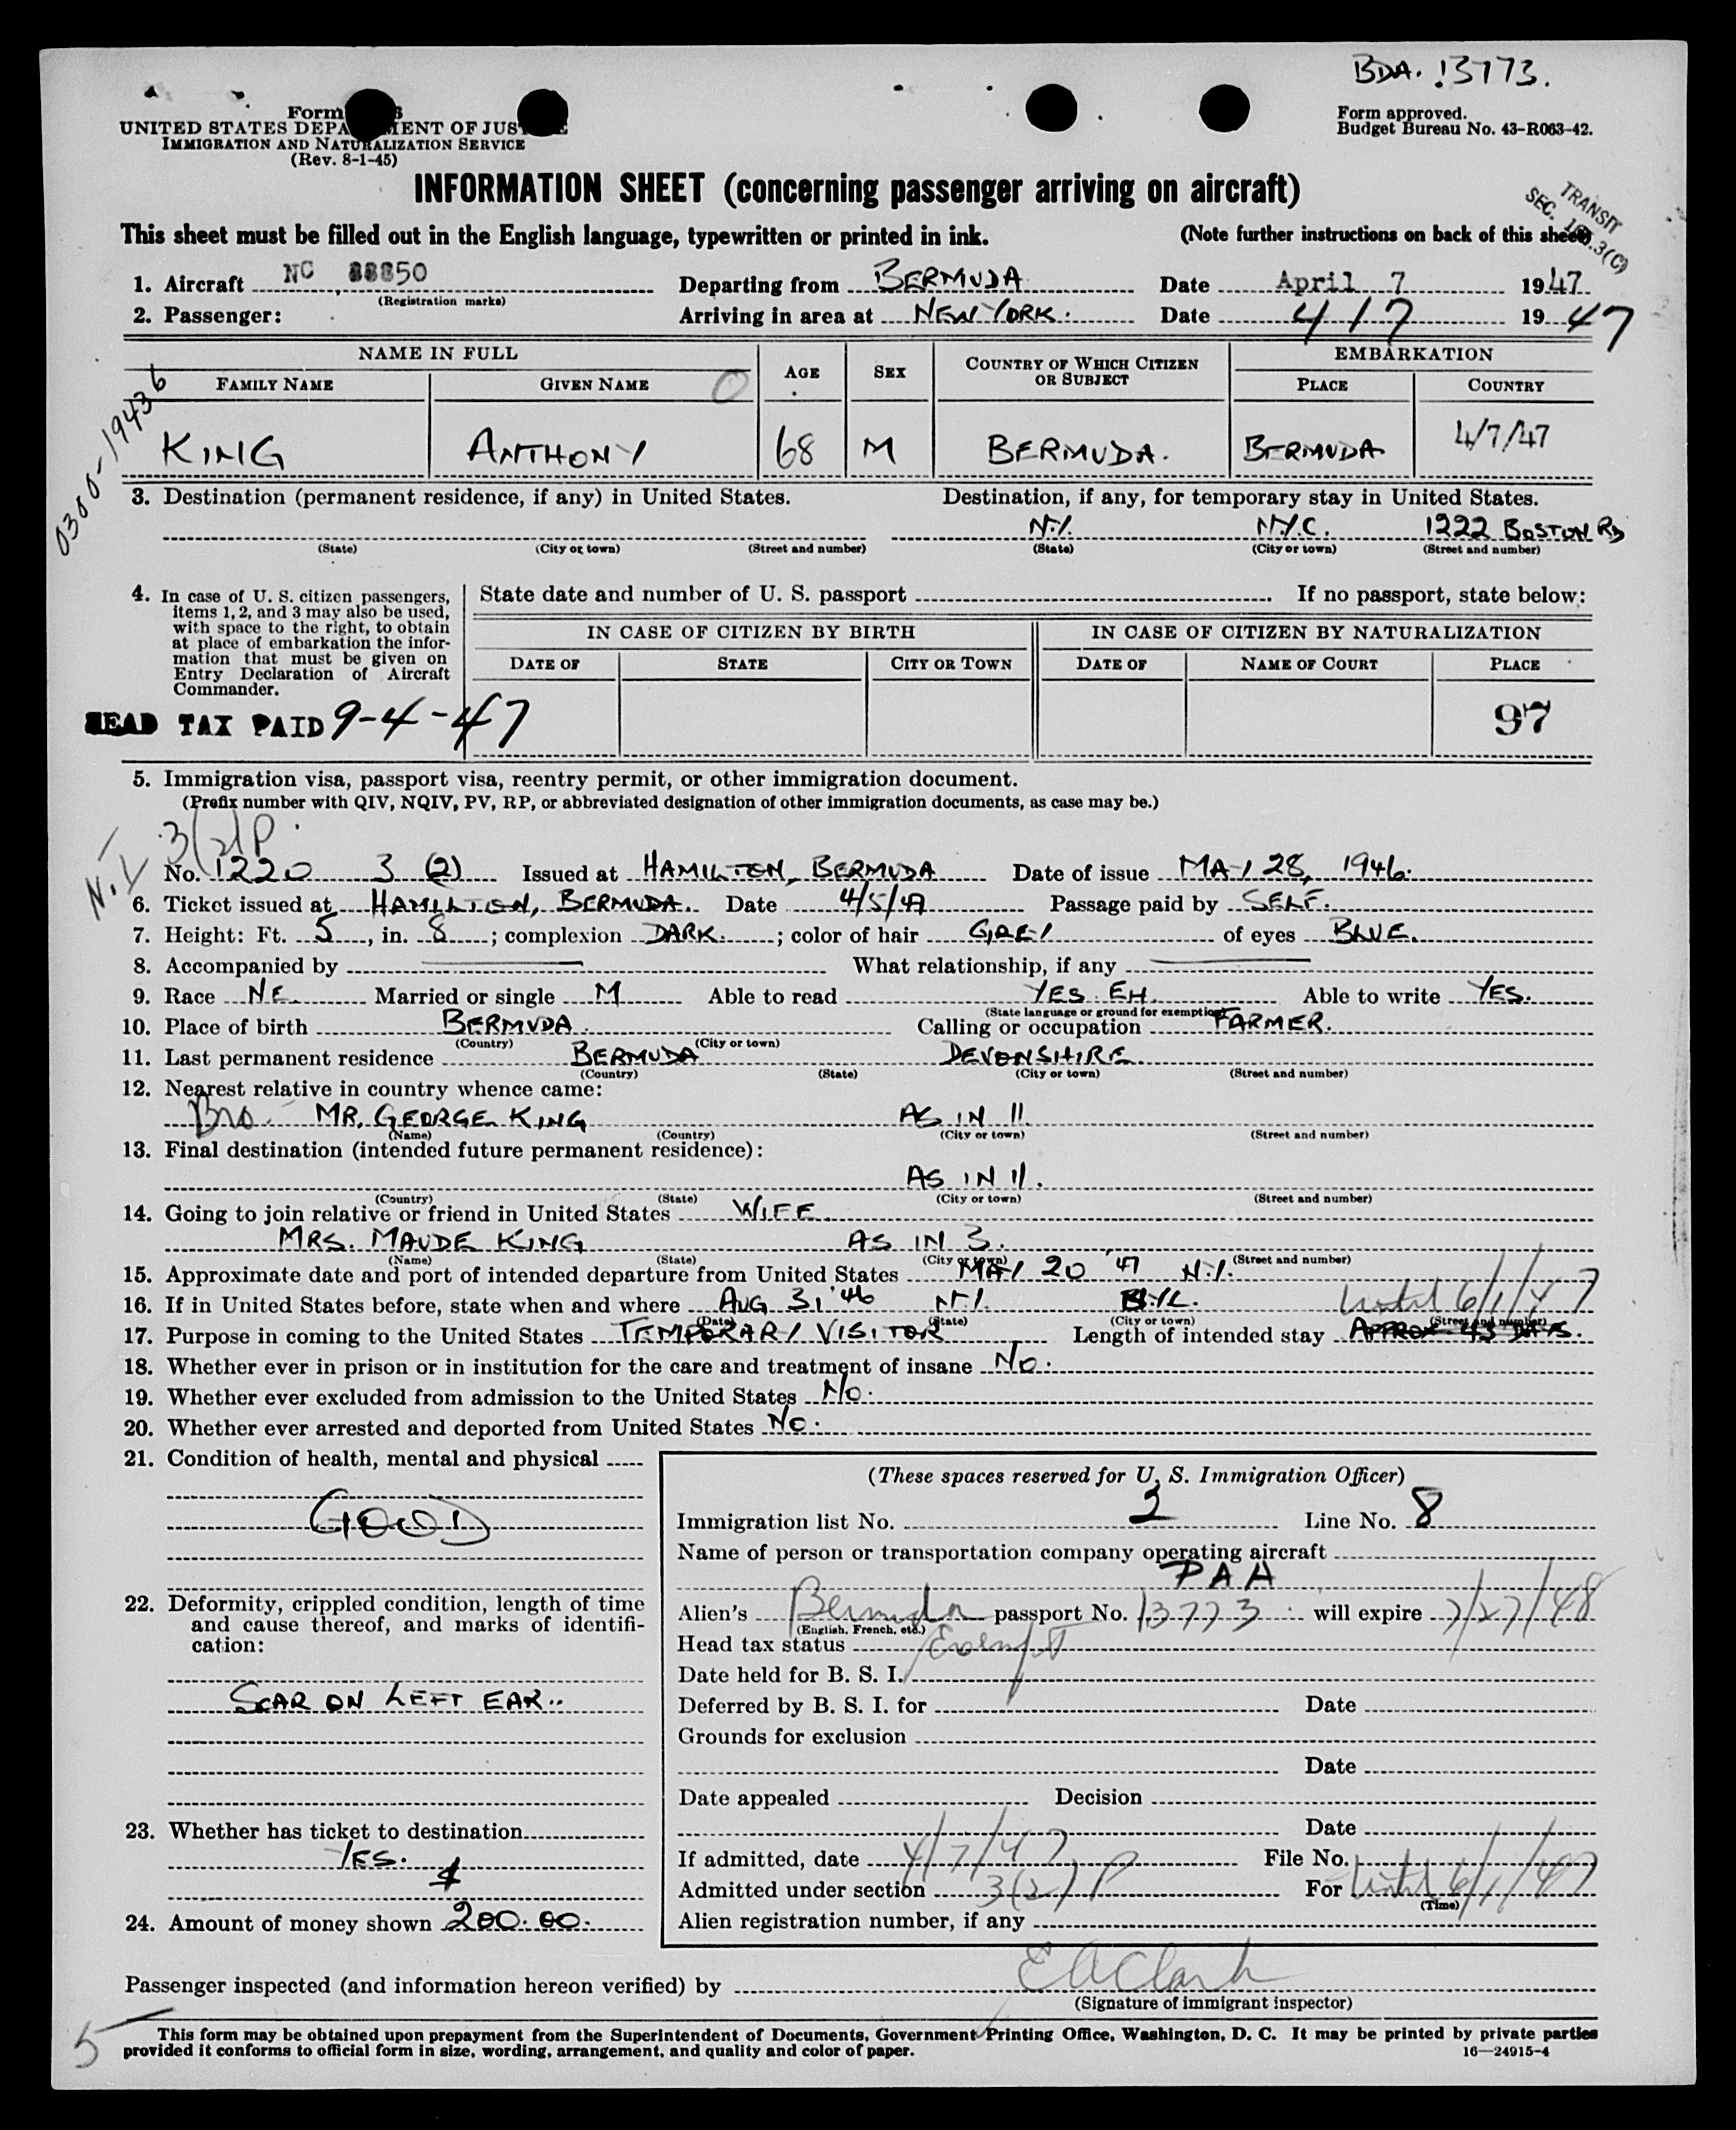 BDA. 13773.
Form
UNITED STATES DEPARTMENT OF JUSTICE
IMMIGRATION AND NATURALIZATION SERVICE
(Rev. 8-1-45)
Form approved.
Budget Bureau No. 43-R063-42.
INFORMATION SHEET (concerning passenger arriving on aircraft)
TRANSIT
SEC. 3(C)
This sheet must be filled out in the English language, typewritten or printed in ink. (Note further instructions on back of this sheet)
1. Aircraft NC 88850 Departing from BERMUDA Date April 7 1947
(Registration marks)
2. Passenger: Arriving in area at NEW YORK. Date 4/7 1947
NAME IN FULL AGE SEX COUNTRY OF WHICH CITIZEN OR SUBJECT EMBARKATION
FAMILY NAME GIVEN NAME PLACE COUNTRY
0300-19436
KING ANTHONY 68 M BERMUDA. BERMUDA 4/7/47
3. Destination (permanent residence, if any) in United States. Destination, if any, for temporary stay in United States.
N.Y. N.Y.C. 1222 BOSTON RD
(State) (City or town) (Street and number) (State) (City or town) (Street and number)
4. In case of U. S. citizen passengers, items 1, 2, and 3 may also be used, with space to the right, to obtain at place of embarkation the information that must be given on Entry Declaration of Aircraft Commander.
State date and number of U. S. passport If no passport, state below:
IN CASE OF CITIZEN BY BIRTH IN CASE OF CITIZEN BY NATURALIZATION
DATE OF STATE CITY OR TOWN DATE OF NAME OF COURT PLACE
HEAD TAX PAID 9-4-47 97
5. Immigration visa, passport visa, reentry permit, or other immigration document.
(Prefix number with QIV, NQIV, PV, RP, or abbreviated designation of other immigration documents, as case may be.)
N.Y 3(2)P
No. 1220 3 (2) Issued at HAMILTON, BERMUDA Date of issue MAY 28, 1946.
6. Ticket issued at HAMILTON, BERMUDA. Date 4/5/47 Passage paid by SELF.
7. Height: Ft. 5, in. 8; complexion DARK.; color of hair GREY of eyes BLUE.
8. Accompanied by What relationship, if any
9. Race NE. Married or single M Able to read YES. EH. Able to write YES.
(State language or ground for exemption)
10. Place of birth BERMUDA. Calling or occupation FARMER.
(Country) (City or town)
11. Last permanent residence BERMUDA DEVONSHIRE.
(Country) (State) (City or town) (Street and number)
12. Nearest relative in country whence came:
Bro. MR. GEORGE KING AS IN 11.
(Name) (Country) (City or town) (Street and number)
13. Final destination (intended future permanent residence):
AS IN 11.
(Country) (State) (City or town) (Street and number)
14. Going to join relative or friend in United States WIFE
MRS. MAUDE KING AS IN 3.
(Name) (State) (City or town) (Street and number)
15. Approximate date and port of intended departure from United States MAY 20 '47 N.Y.
16. If in United States before, state when and where AUG 31 '46 N.Y. N.Y.C. Until 6/1/47
(Date) (State) (City or town) (Street and number)
17. Purpose in coming to the United States TEMPORARY VISITOR Length of intended stay APPROX. 43 DAYS.
18. Whether ever in prison or in institution for the care and treatment of insane NO.
19. Whether ever excluded from admission to the United States NO.
20. Whether ever arrested and deported from United States NO.
21. Condition of health, mental and physical
GOOD
22. Deformity, crippled condition, length of time and cause thereof, and marks of identification:
SCAR ON LEFT EAR..
23. Whether has ticket to destination
YES.
$
24. Amount of money shown 200.00.
(These spaces reserved for U. S. Immigration Officer)
Immigration list No. 2 Line No. 8
Name of person or transportation company operating aircraft
PAA
Alien's Bermuda passport No. 13773 will expire 7/27/48
(English, French, etc.)
Head tax status Exempt
Date held for B. S. I.
Deferred by B. S. I. for Date
Grounds for exclusion
Date
Date appealed Decision
Date
If admitted, date 4/7/47 File No.
Admitted under section 3(2)P For Until 6/1/47
(Time)
Alien registration number, if any
Passenger inspected (and information hereon verified) by E A Clark
(Signature of immigrant inspector)
5
This form may be obtained upon prepayment from the Superintendent of Documents, Government Printing Office, Washington, D. C. It may be printed by private parties
provided it conforms to official form in size, wording, arrangement, and quality and color of paper. 16—24915-4